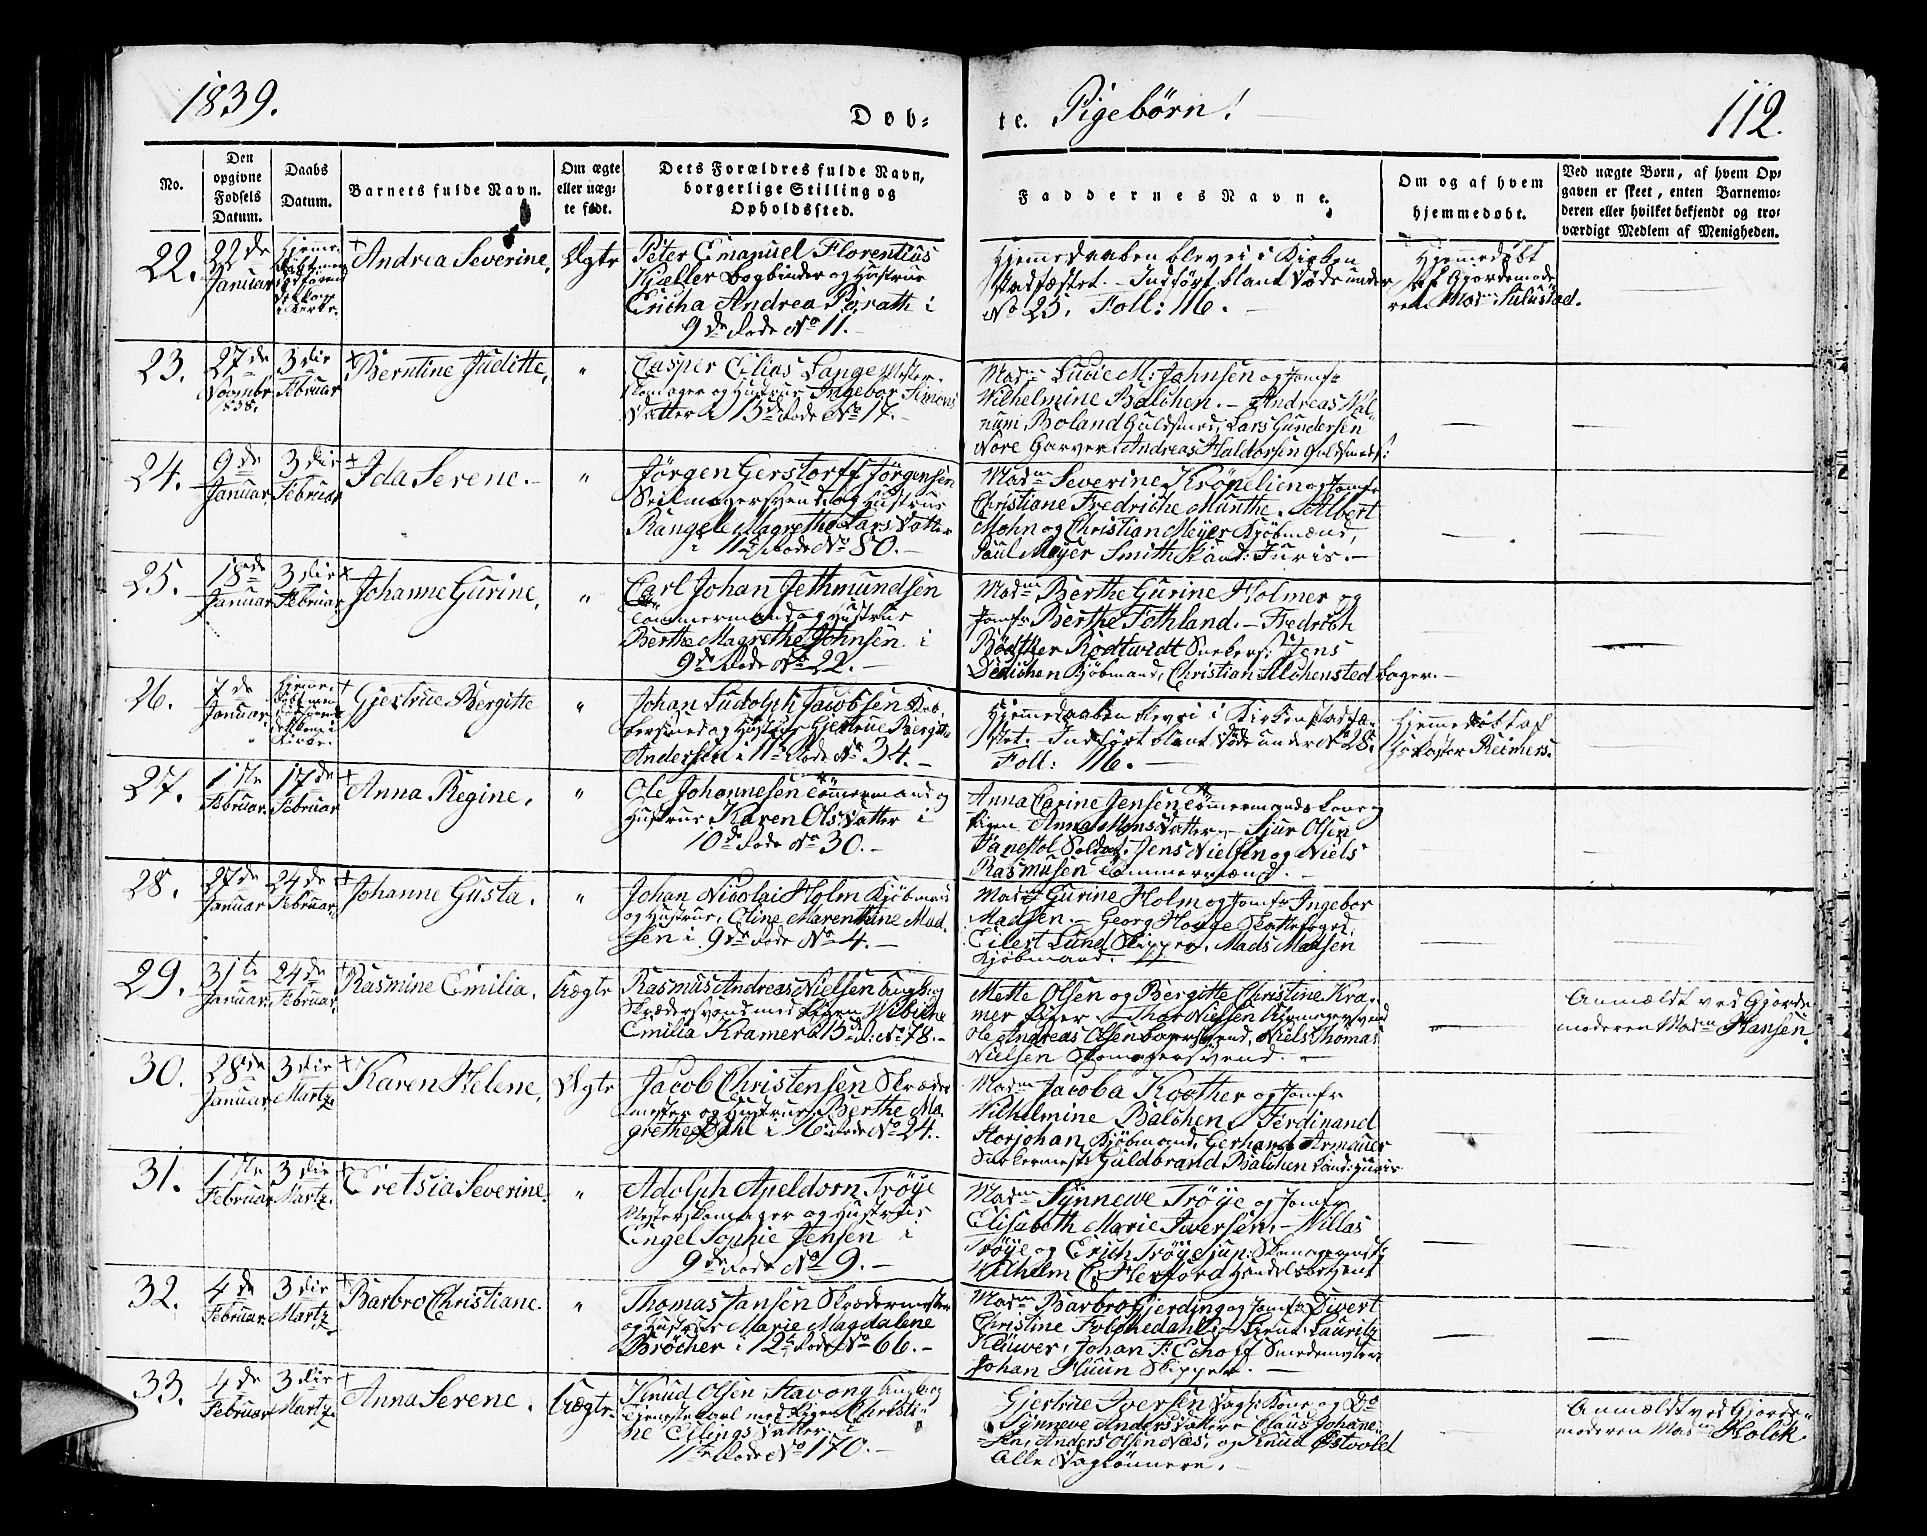 1839.
Døb-
te. Pigebørn!
112.
No.
Den
opgivne
Fødsels
Datum.
Daabs
Datum.
Barnets fulde Navn.
Om ægte
eller uæg-
te født.
Dets Forældres fulde Navn,
borgerlige Stilling og
Opholdssted.
Faddernes Navne.
Om og af hvem
hjemmedøbt.
Ved uægte Børn, af hvem Op-
gaven er skeet, enten Barnemo-
deren eller hvilket bekjendt og tro-
værdigt Medlem af Menigheden.
22.
22de
Januar
Andrea Severine,
Ægte
Peter Emanuel Florentius
Kjøller Bogbinder og Hustrue
Ericha Andrea Porath i
9de Rode No 11.
Hjemmedaaben blev ei i Kirken
stadfæstet. Indført blant Døde under
No 25. Foll: 116.
Hjemmedøbt
af Gjordemode
ren Madm
23.
27de
Novembr
1838.
3die
Februar
Berntine Juditte,
"
Casper Elias Lange Mester
skomager og Hustrue Ingebor Simons
Datter i 13de Rode No 14.
Madm Lucie M. Jahnsen og Jomf:
Wilhelmine Balchen. Andreas Wal-
nuri Boland Guldsmed, Lars Gundersen
Nore Garver, Andreas Haldorsen Guldsmeds:
24.
9de
Januar
3die
Februar
Ida Serene.
"
Jørgen Gerstorff Jørgensen
Seilmagersvend og Hustrue
Rangele Magrethe Lars Datter
i 11te Rode No 80.
Madm Severine Krøpelien og Jomfr
Christiane Fredriche Munthe. Albert
Mohn og Christian Meyer Kjøbmænd,
Paul Meyer Smith Kand: Juris.
25.
18de
Januar
3die
Februar
Johanne Gurine,
"
Carl Johan Jethmundsen
Tømmermand og Hustrue
Berthe Magrethe Johnsen i
9de Rode No 22.
Madm Berthe Gurine Holmer og
Jomfr Berthe Fothland. Fredrich
Bødtker Rodtwidt Snekers: Jens
Dedichen Kjøbmand, Christian Michensted Bager.
26.
7de
Januar
Gjertrue Bergitte
"
Johan Ludolph Jacobsen Kob
bersmed og Hustrue Gjertrue Bergitte
Andersen i 11te Rode No 34.
Hjemmedaaben blev ei i Kirken stadfæ-
stet. Indført blant Døde under No 28.
Foll: 116.
Hjemmedøbt af
Reimers.
27.
1ste
Februar
17de
Februar
Anna Regine,
"
Ole Johannesen Tømmermand og
Hustrue Karen Ols Datter i
10de Rode No 30.
Anna Carine Jensen Tømmermands Kone og
Pigen Anna Mons Datter. Sjur Olsen
Soldat, Jens Nielsen og Niels
Rasmusen Tømmermænd.
28.
27de
Januar
24de
Februar
Johanne Gusta.
"
Johan Nicolai Holm Kjøbmand
og Hustrue, Oline Marenthine Mad-
sen i 9de Rode No 4.
Madm Gurine Holm og Jomfr Ingebor
Madsen. Georg Houge
Eilert Lund Skipper, Mads Madsen
Kjøbmand.
29.
31te
Januar
24de
Februar
Rasmine Emilia.
Uægte
Rasmus Andreas Nielsen Ungk: og
Skrædersvend med Pigen Wibiche
Emilia Kramer i 13de R: No 78.
Mette Olsen og Bergitte Christine Kra-
mer Piger. Thor Nielsen svend
Ole Andreas Olsen Bagersvend, Niels Thomas
Nielsen Skomagersvend.
Anmældt ved Gjorde
moderen Madm Hansen.
30.
28de
Januar
3die
Martz
Karen Helene,
Ægte
Jacob Christensen Skræder
mester og Hustrue Berthe Ma-
grethe Dahl i 16de Rode No 24.
Madm Jacoba Koother og Jomfr
Wilhelmine Balchen, Ferdinand
Storjohan Kjøbmand, Gerhard Armauer
Snekermester Guldbrand Balchen Cand: Juris
31.
1ste
Februar
3die
Martz.
Eretsia Severine.
"
Adolph Apeldorn Trøye
Mesterskomager og Hustrue
Engel Sophie Jensen i
9de Rode No 9.
Madm Synnewe Trøye og Jomfr
Elisabeth Marie Iversen, Willas
Trøye og Erich Trøye jun: Skomagermst:
Wilhelm C. Herford Handelsbetjent
32.
4de
Februar
3die
Martz
Barbro Christiane.
"
Thomas Jansen Skrædermester
og Hustrue Marie Magdalene
Brøcher i 12te Rode No 66.
Madm Barbro Gjerding og Jomfr Divert
Christine Folchedahl, Lieut: Lauritz
Klüwer, Johan F. Echoff Smedemester
Johan Fluun Skipper.
33.
4de
Februar
3die
Martz.
Anna Serene.
Uægte.
Knud Olsen Stavong Ungk: og
Tjenestekarl med Pigen Christi-
ne Ellings Datter i
11te Rode No 170.
Gjertrue Iversen Dags: Kone, og Do
Synneve Anders Datter, Claus Johane-
sen, Anders Olsen Næs, og Knud Østvold
Alle Daglønnere.
Anmældt ved Gjorde-
moderen Madm Holck.